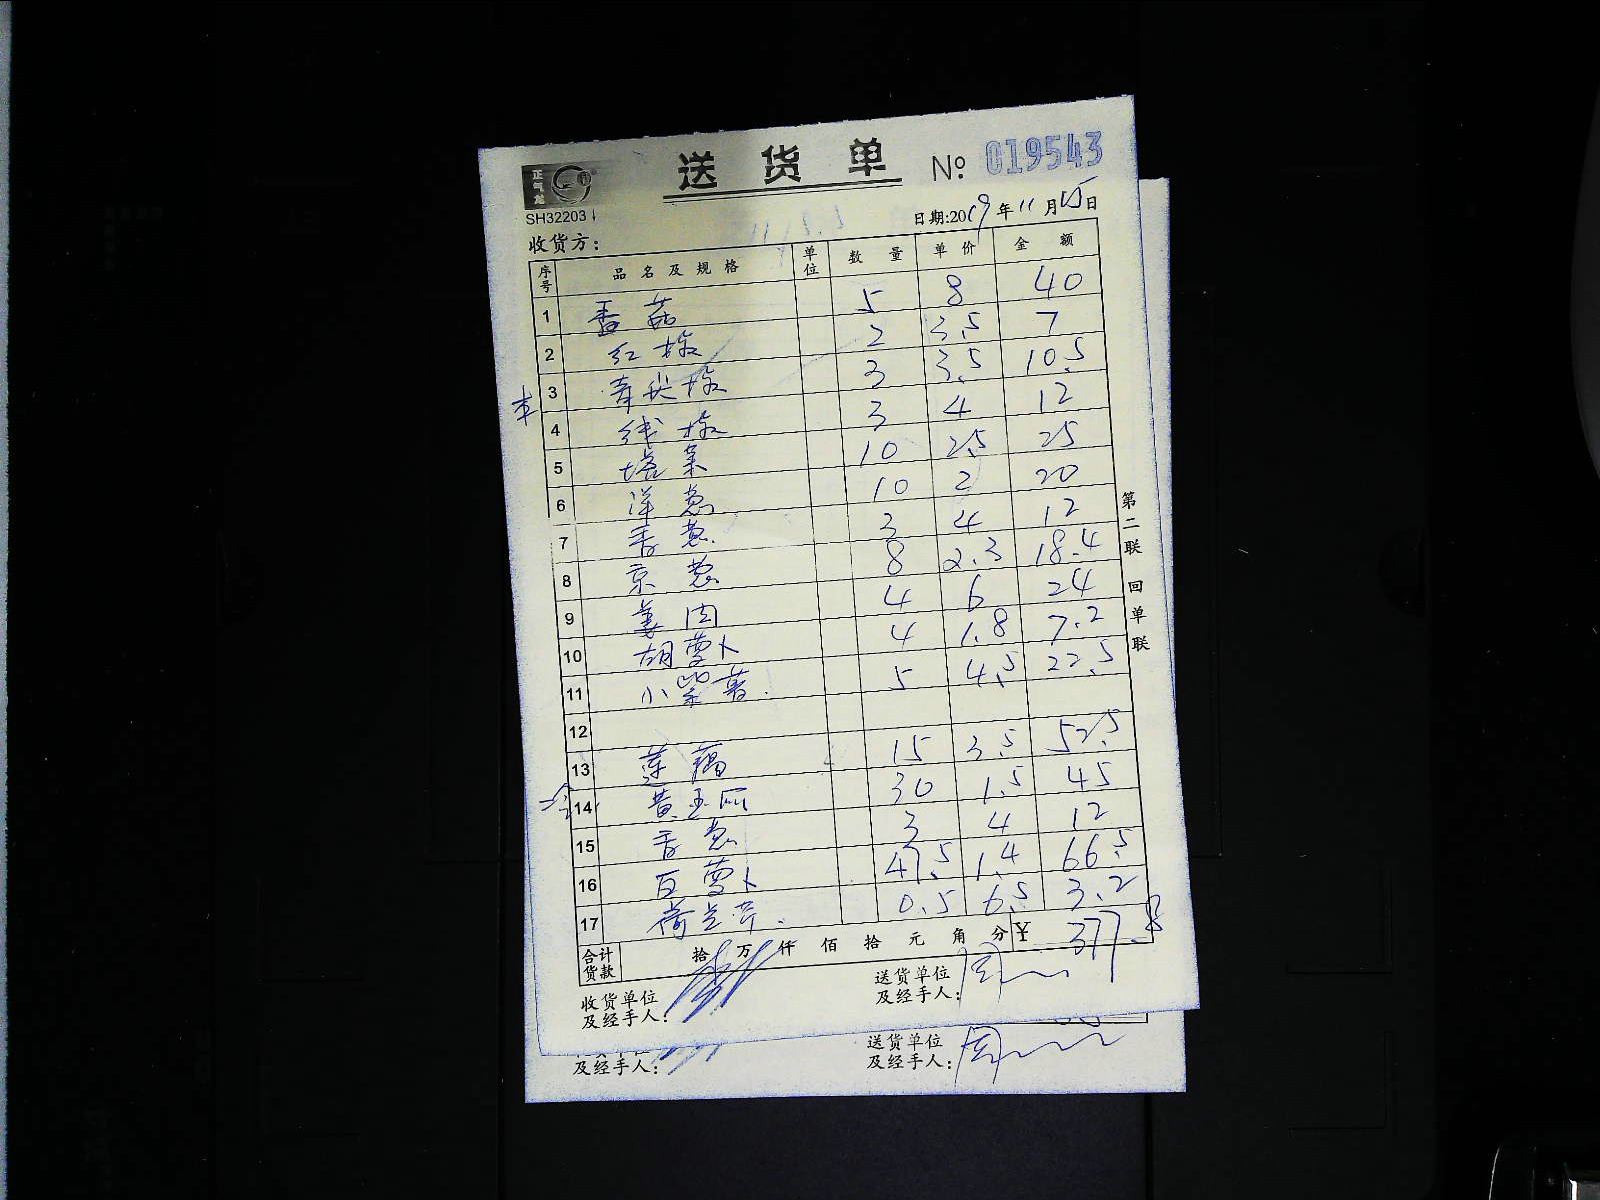 送货单 № 019543
正气龙
SH32203
日期:2019年11月15日
收货方:
序号 品名及规格 单位 数量 单价 金额
1 香菇 5 8 40
2 红椒 2 3.5 7
3 青尖椒 3 3.5 10.5
4 线椒 3 4 12
5 塔菜 10 2.5 25
6 洋葱 10 2 20
7 香葱 3 4 12
8 京葱 8 2.3 18.4
9 姜肉 4 6 24
10 胡萝卜 4 1.8 7.2
11 小紫薯 5 4.5 22.5
12
13 莲藕 15 3.5 52.5
14 黄玉瓜 30 1.5 45
15 香葱 3 4 12
16 白萝卜 47.5 1.4 66.5
17 荷兰芹 0.5 6.5 3.2
合计货款 拾 万 仟 佰 拾 元 角 分 ¥ 377.8
收货单位及经手人:
送货单位及经手人: 周
第二联 回单联
及经手人:
送货单位及经手人: 周